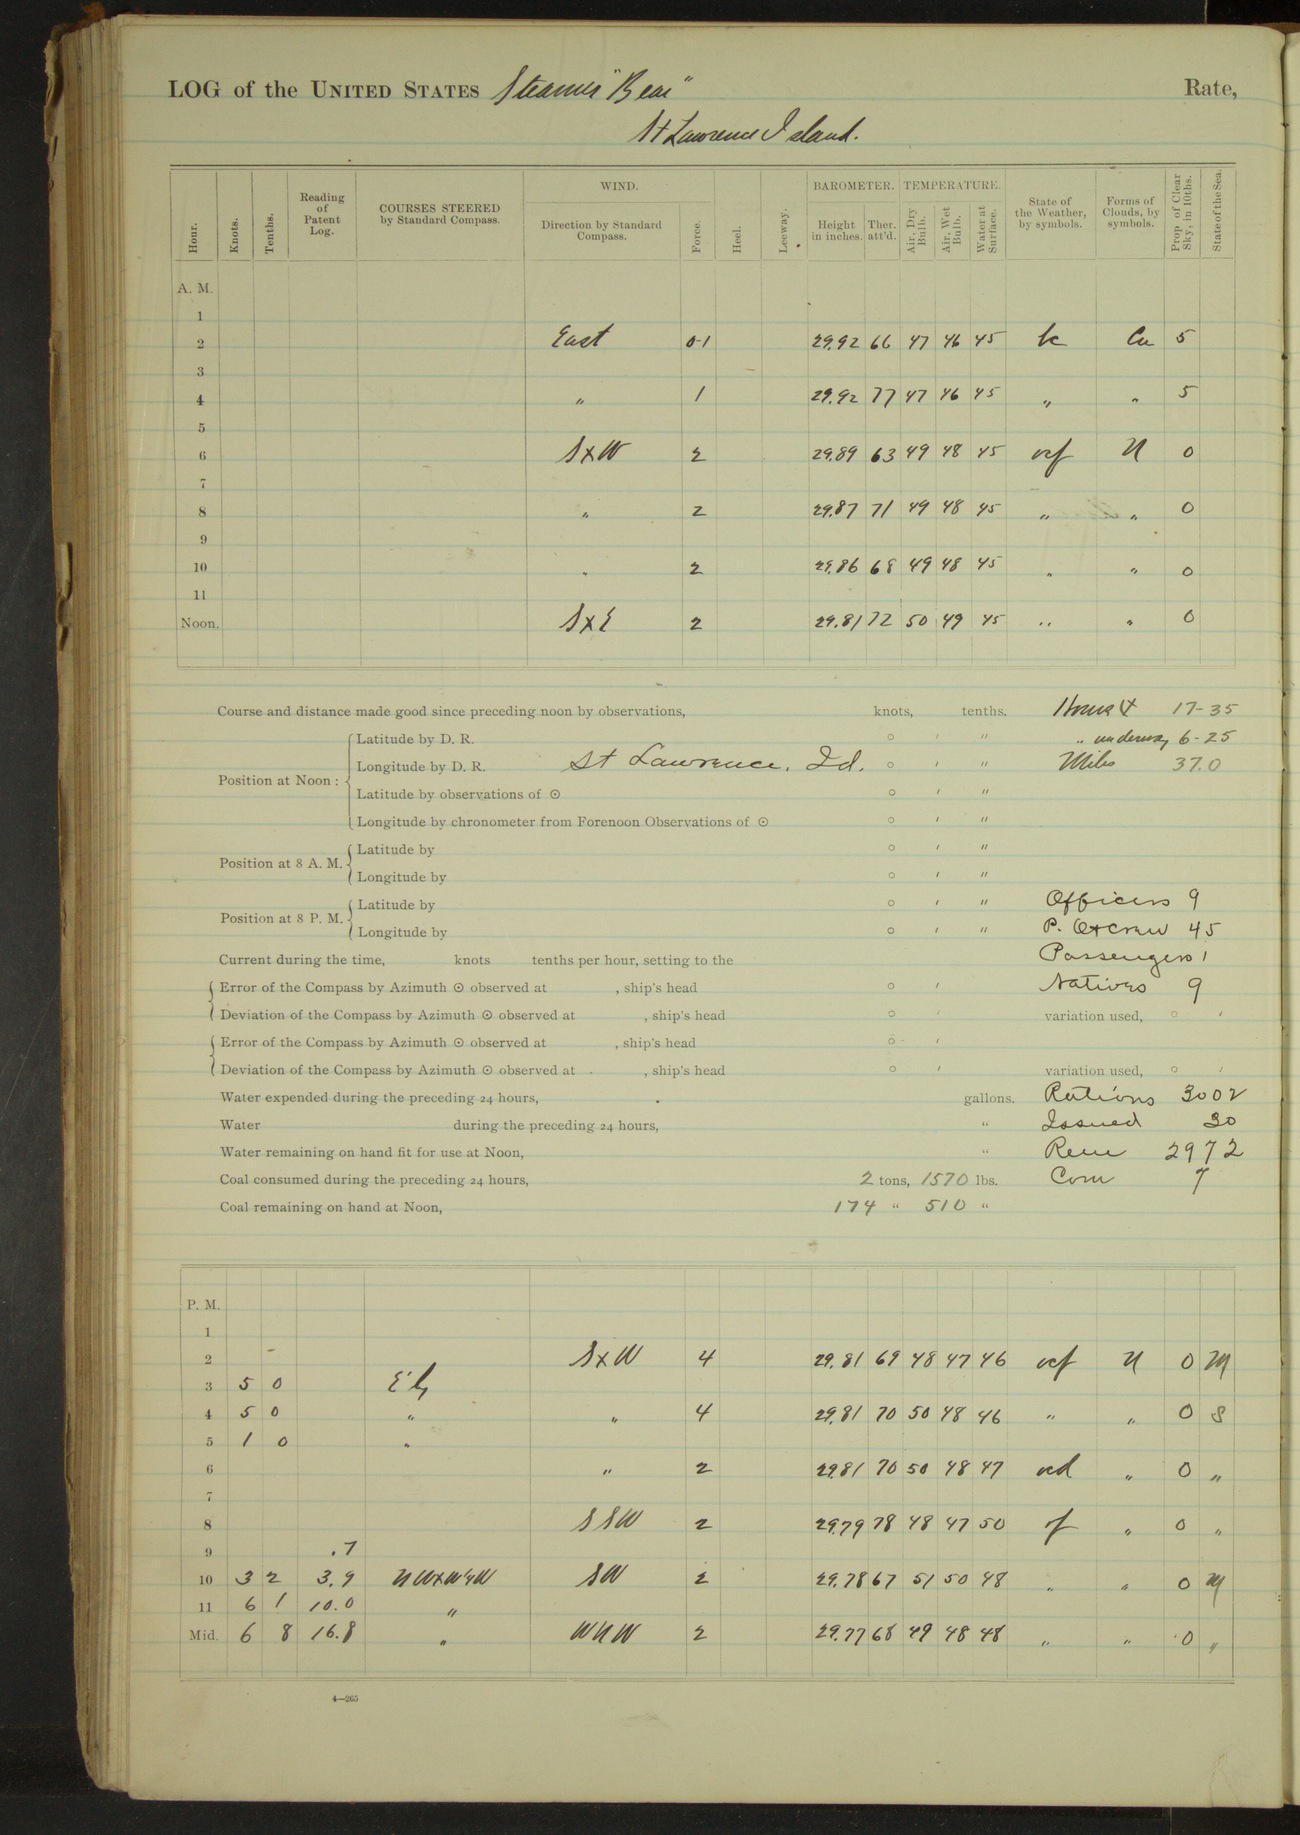 LOG of the UNITED STATES Steamer "Bear" Rate,
St Lawrence Island.
Hour. Knots. Tenths. Reading of Patent Log. COURSES STEERED by Standard Compass. WIND. Direction by Standard Compass. Force. Heel. Leeway. BAROMETER. Height in inches. Ther. att'd. TEMPERATURE. Air, Dry Bulb. Air, Wet Bulb. Water at Surface. State of the Weather, by symbols. Forms of Clouds, by symbols. Prop. of Clear Sky, in 10ths. State of the Sea.
A. M.
1
2 East 0-1 29.92 66 47 46 45 bc Cu 5
3
4 " 1 29.92 77 47 46 45 " " 5
5
6 SxW 2 29.89 63 49 48 45 ocf N 0
7
8 " 2 29.87 71 49 48 45 " " 0
9
10 " 2 29.86 68 49 48 45 " " 0
11
Noon. SxE 2 29.81 72 50 49 45 " " 0
Course and distance made good since preceding noon by observations, knots, tenths. Hours 17-35
Latitude by D. R. ° ′ ″ " underway 6-25
Position at Noon: Longitude by D. R. St Lawrence. Id. ° ′ ″ Miles 37.0
Latitude by observations of ☉ ° ′ ″
Longitude by chronometer from Forenoon Observations of ☉ ° ′ ″
Position at 8 A. M. Latitude by ° ′ ″
Longitude by ° ′ ″
Position at 8 P. M. Latitude by ° ′ ″ Officers 9
Longitude by ° ′ ″ P. O & Crew 45
Current during the time, knots tenths per hour, setting to the Passengers 1
Error of the Compass by Azimuth ☉ observed at , ship's head ° ′ Natives 9
Deviation of the Compass by Azimuth ☉ observed at , ship's head ° ′ variation used, ° ′
Error of the Compass by Azimuth ☉ observed at , ship's head ° ′
Deviation of the Compass by Azimuth ☉ observed at , ship's head ° ′ variation used, ° ′
Water expended during the preceding 24 hours, gallons. Rations 3002
Water during the preceding 24 hours, " Issued 30
Water remaining on hand fit for use at Noon, " Rem 2972
Coal consumed during the preceding 24 hours, 2 tons, 1570 lbs. Com 7
Coal remaining on hand at Noon, 174 " 510 "
P. M.
1
2 SxW 4 29.81 69 48 47 46 ocf N 0 M
3 5 0
4 5 0 " " 4 29.81 70 50 48 46 " " 0 S
5 1 0 "
6 " 2 29.81 70 50 48 47 ocd " 0 "
7
8 SSW 2 29.79 78 48 47 50 of " 0 "
9 .7
10 3 2 3.9 NWxW½W SW 2 29.78 67 51 50 48 " " 0 M
11 6 1 10.0 "
Mid. 6 8 16.8 " WNW 2 29.77 68 49 48 48 " " 0 "
4—265